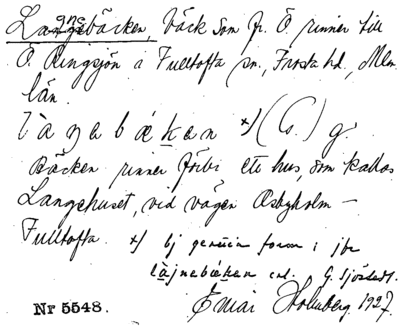 Langebäcken, bäck som fr. Ö rinner till
Ö. Ringsjön i Fulltofta sn., Frosta hd., Mlm.
län.
làŋabækan x) (G.) g.
Bäcken rinner förbi ett hus, som kallas
Langehuset, vid vägen Osbyholm –
Fulltofta. x) Ej genuin form; jfr
làjnebækan enl. G. Sjöstedt.
Nr 5548. Ernst Holmberg 1927.